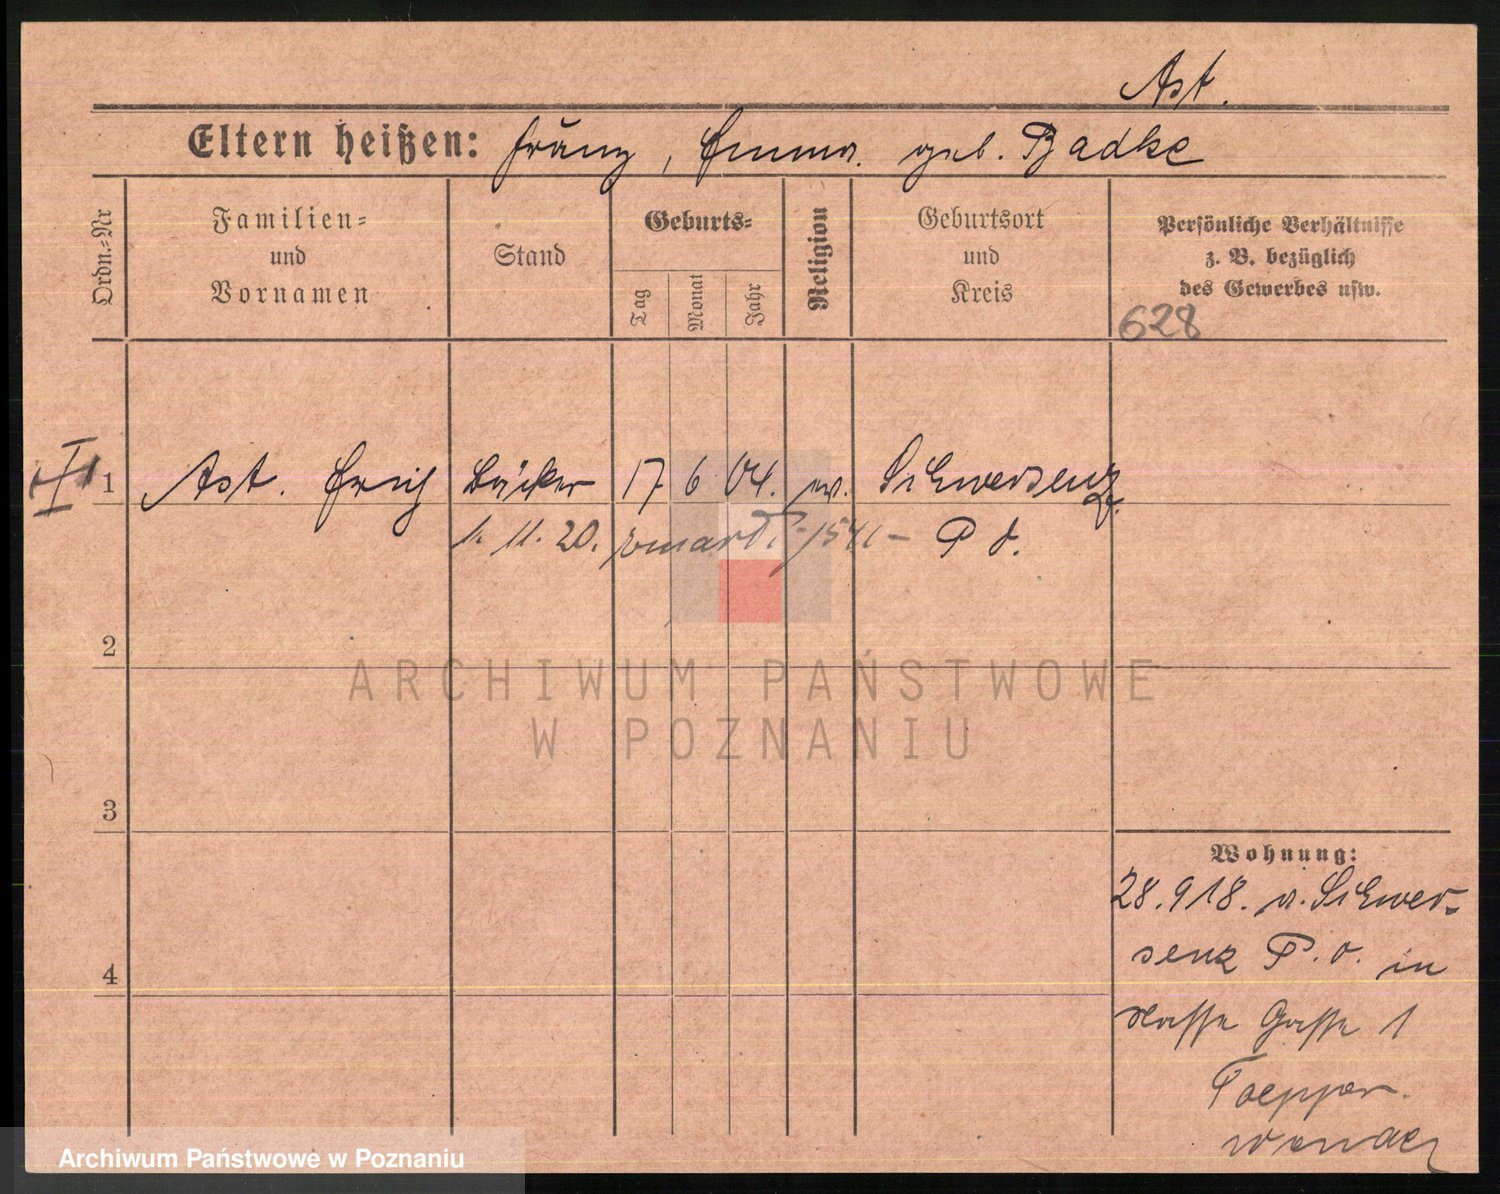 Ast.
Eltern heißen: Franz, Emma. geb. Badke
Ordn.=Nr
Familien=
und
Vornamen
Stand
Geburts=
Tag
Monat
Jahr
Religion
Geburtsort
und
Kreis
Persönliche Verhältnisse
z. B. bezüglich
des Gewerbes usw.
628
1 Ast. Erich Bäcker 17 6 04. ev. Schwersenz
1. 11. 20. 1541 - P O.
2
ARCHIWUM PAŃSTWOWE
W POZNANIU
3
Wohnung:
28.9 18. a. Schwer-
senz P.O. in
4
Nasse Gasse 1
Toepper.
Archiwum Państwowe w Poznaniu